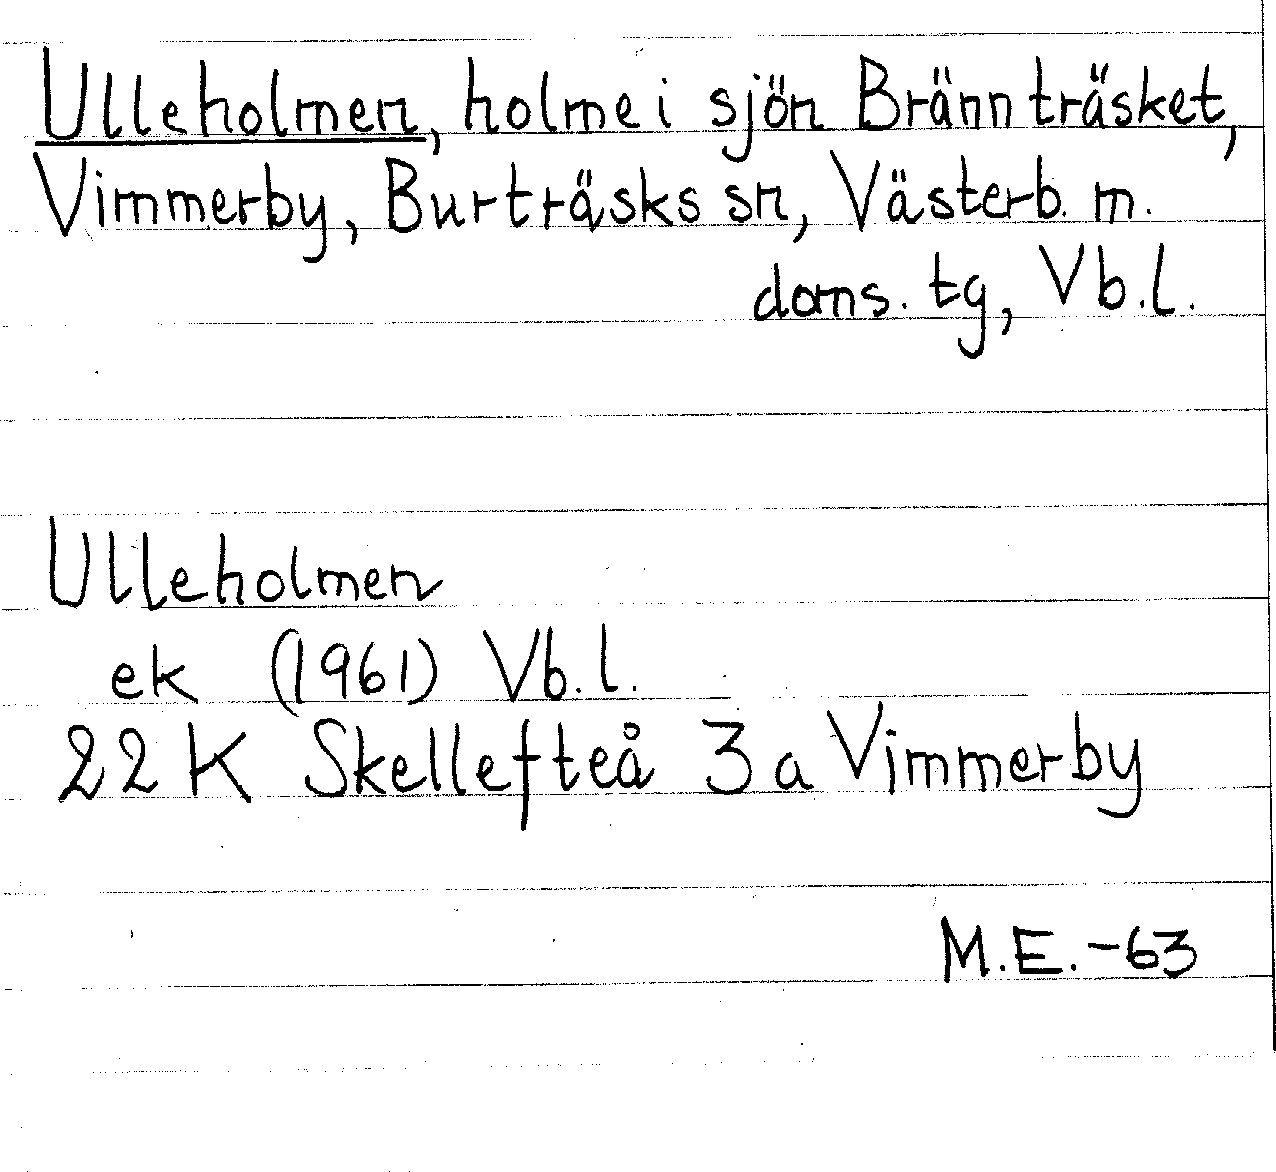 Ulleholmen, holme i sjön Brännträsket,
Vimmerby, Burträsks sn, Västerb. m.
doms. tg, Vb.l.
Ulleholmen
ek (1961) Vb.l.
22 K Skellefteå 3 a Vimmerby
M.E.-63